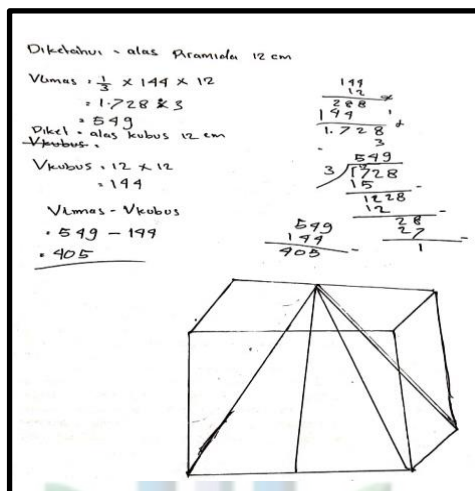 Diketahui = alas Piramida 12 cm
Vlimas = 1/3 × 144 × 12
= 1.728 × 3
= 549
Diket = alas kubus 12 cm
Vkubus =
Vkubus = 12 × 12
= 144
Vlimas - Vkubus
= 549 - 144
= 405
144
12 ×
288
144
1.728 +
3
549
3 1728
15 -
1228
12 -
28
27 -
1
549
144 -
405